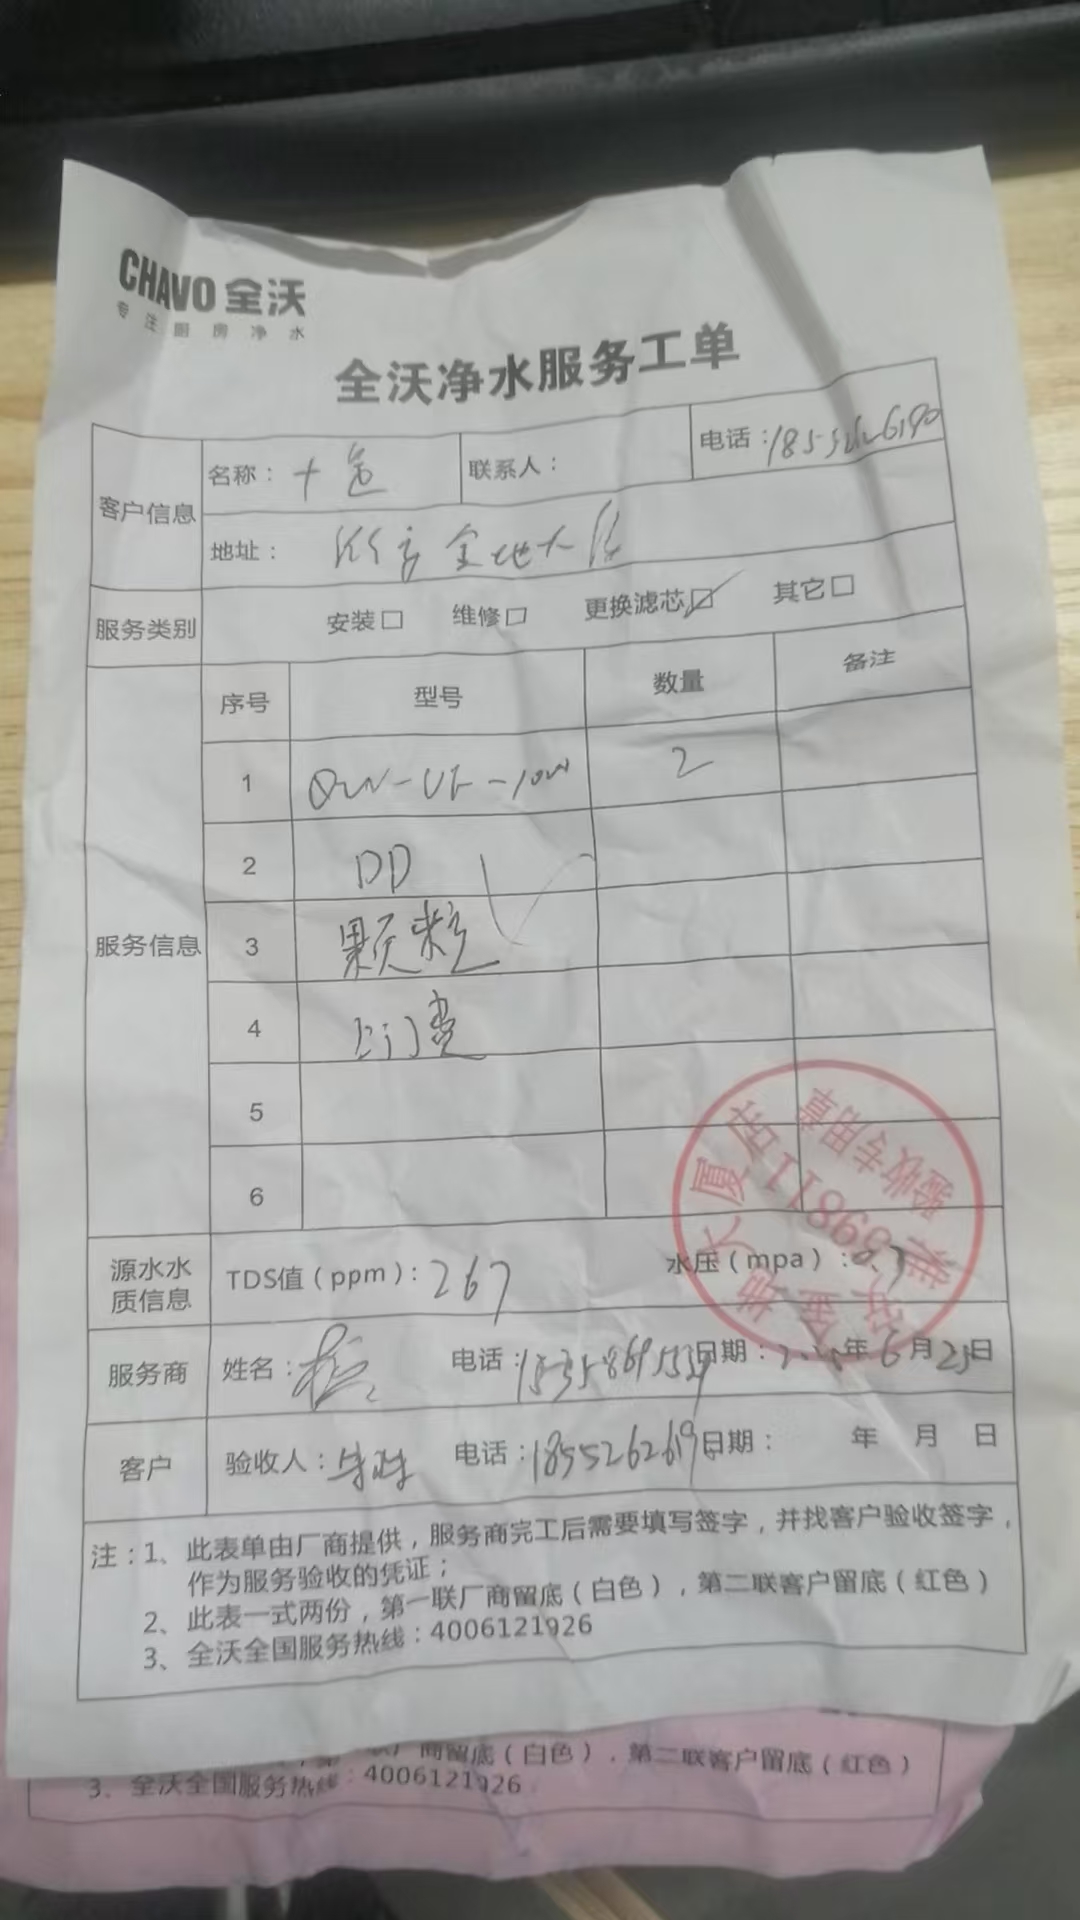 CHAVO 全沃
专注厨房净水
全沃净水服务工单
客户信息
名称：
联系人：
电话：
地址： 金地大
服务类别
安装□ 维修□ 更换滤芯☑ 其它□
服务信息
序号 型号 数量 备注
1 2
2 DD
3 颗粒
4 上门费
5
6
源水水质信息
TDS值（ppm）：267 水压（mpa）：0.7
服务商 姓名： 电话： 日期： 年6月25日
客户 验收人： 电话：1855262619 日期： 年 月 日
注：1、此表单由厂商提供，服务商完工后需要填写签字，并找客户验收签字，
作为服务验收的凭证；
2、此表一式两份，第一联厂商留底（白色），第二联客户留底（红色）
3、全沃全国服务热线：4006121926
验收专用章
商留底（白色），第二联客户留底（红色）
3、全沃全国服务热线：4006121926